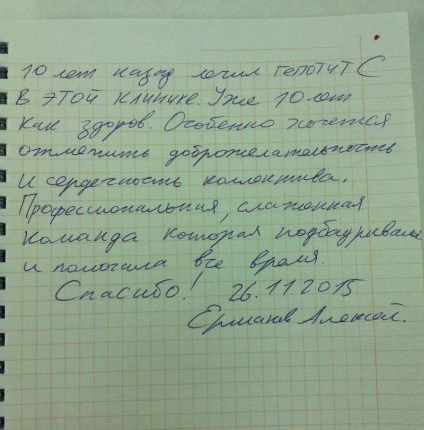 10 лет назад лечил гепотит С
В этой клинике. Уже 10 лет
как здоров. Особенно хочется
отметить доброжелательность
и сердечность коллектива.
Профессиональная, слаженная
команда которая подбадривала
и помогала все время.
Спасибо! 26.11.2015
Ермаков Алексей.